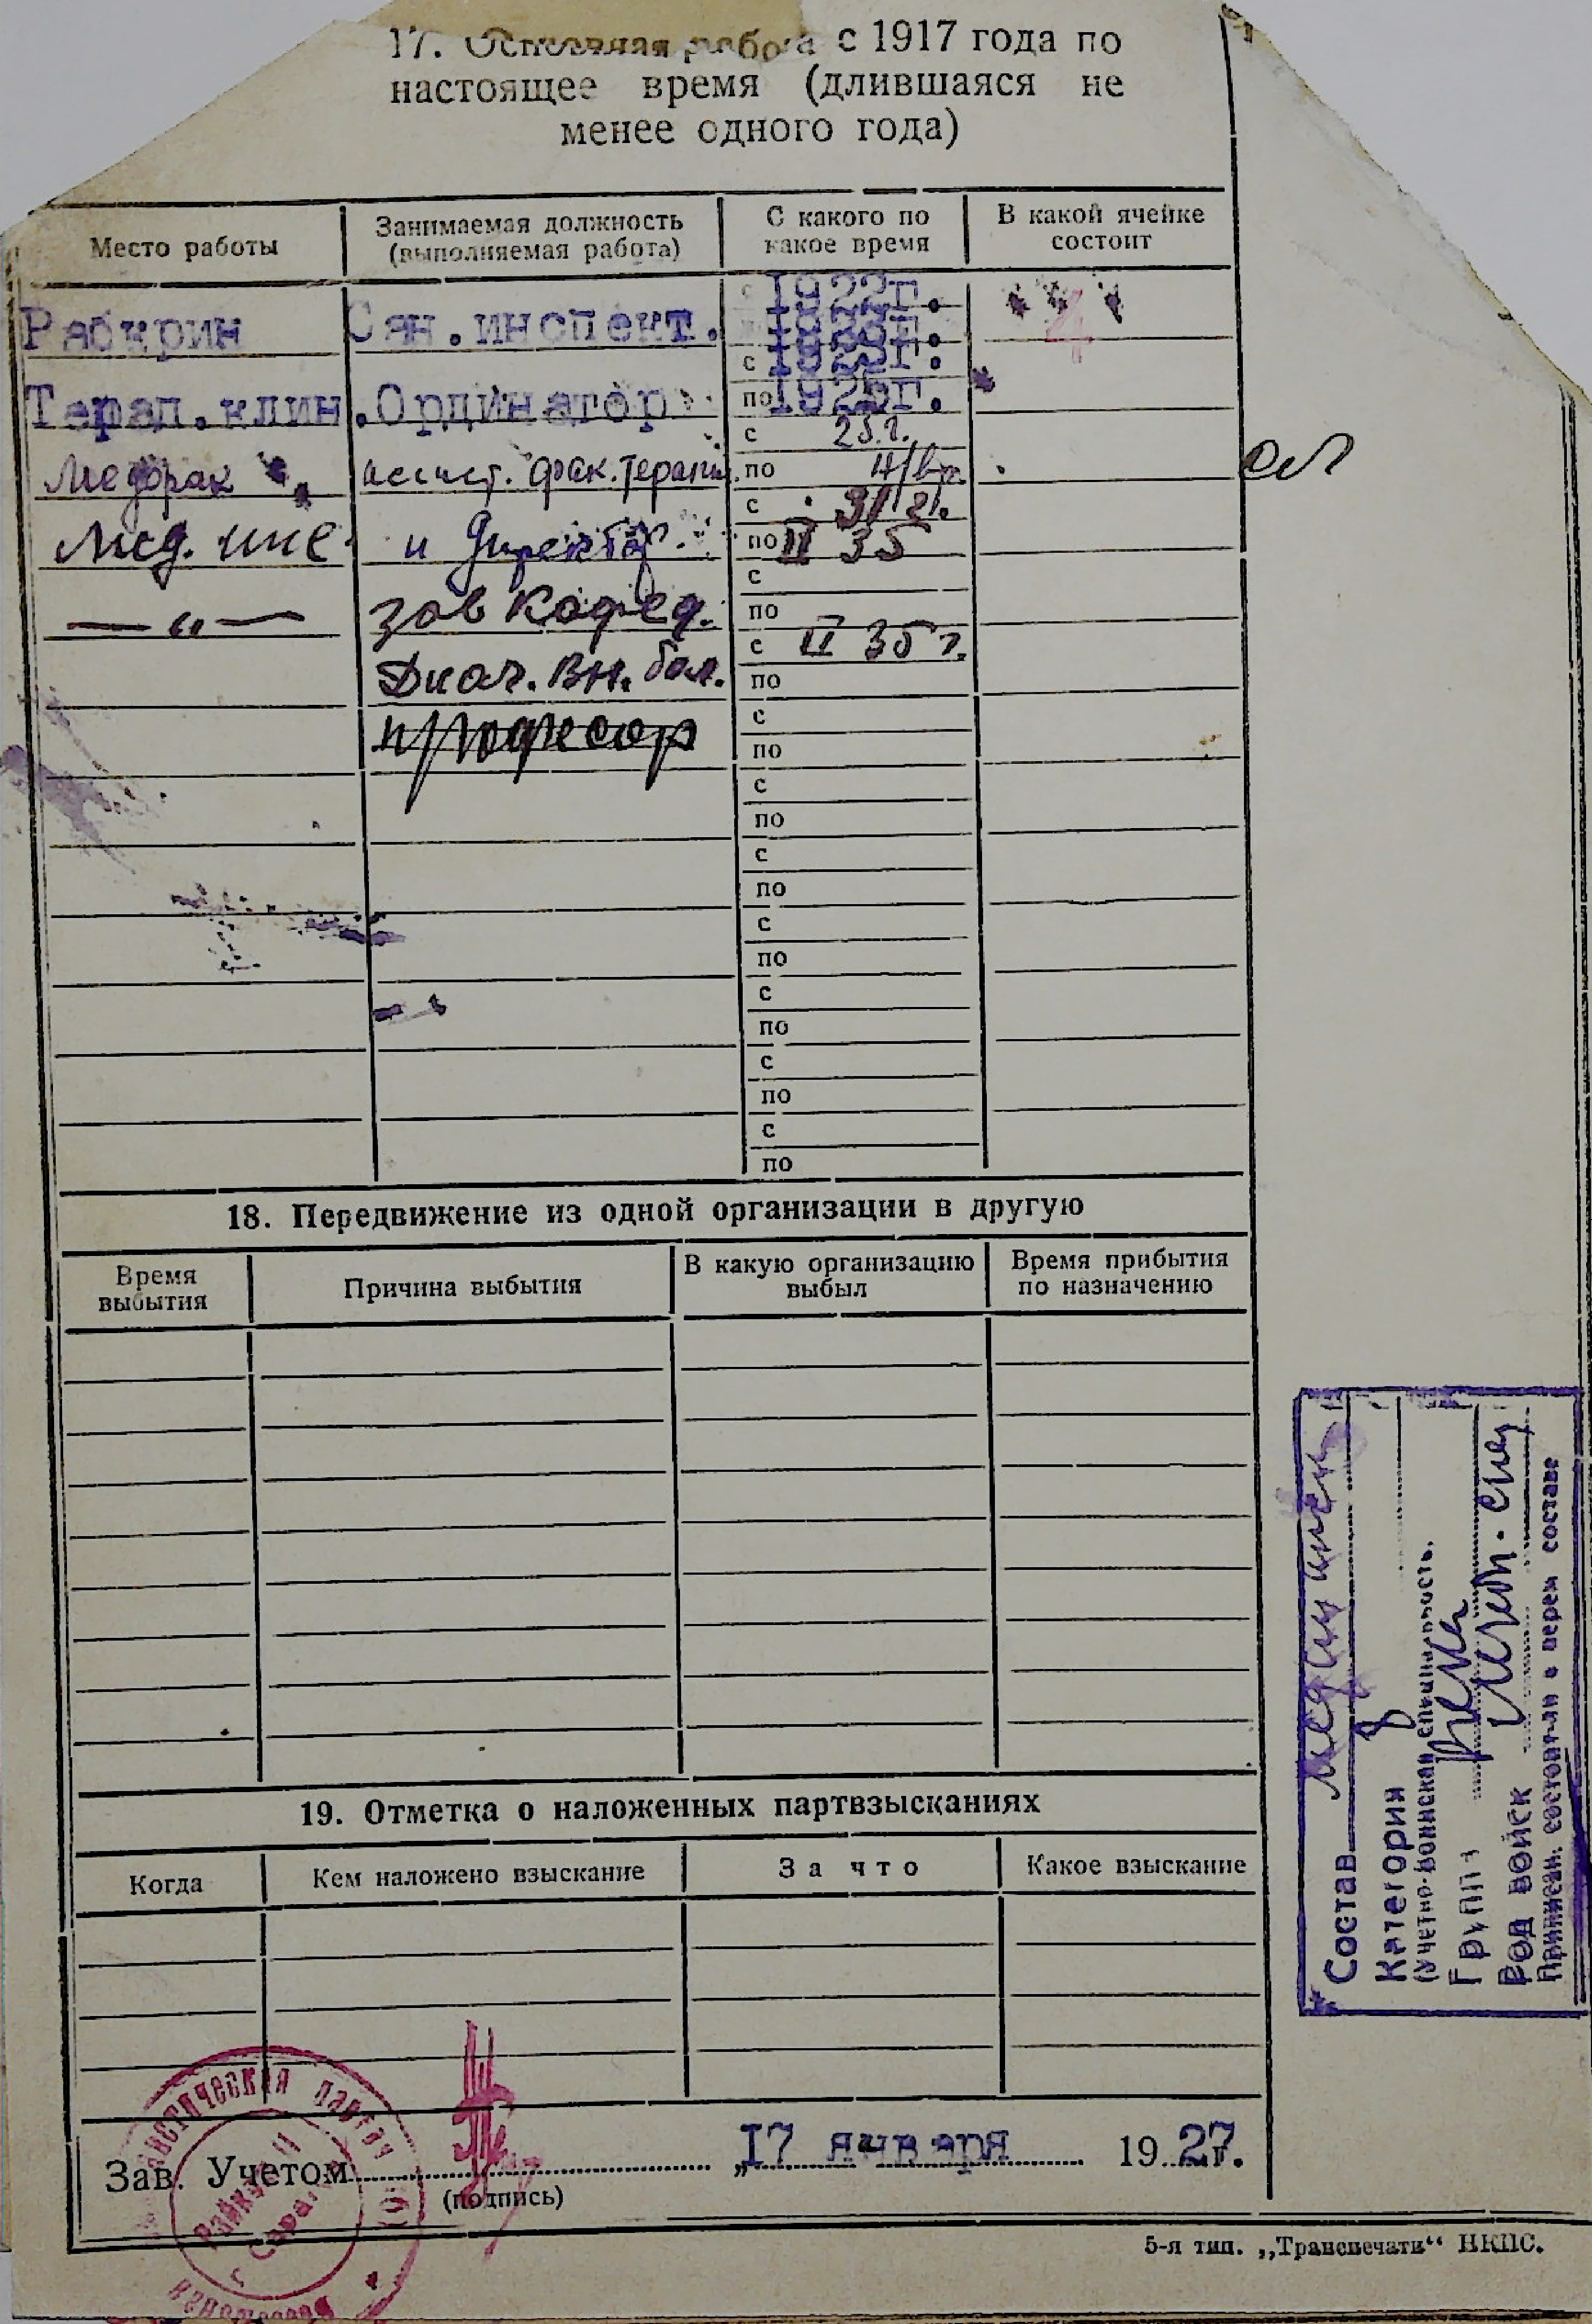 17. Основная работа с 1917 года по
настоящее время (длившаяся не
менее одного года)
Место работы
Занимаемая должность
(выполняемая работа)
С какого по
какое время
В какой ячейке
состоит
Рабкрин Сан.инспект. с 1922г.
4
с
Терап.клин. Ординатор по 1925г.
с 25 г.
Медфак ассист. фак. терапии. по
с
Мед. инс. и Директор. по II 35
с
— „ — зав Кафед. по
с II 35 г.
Диаг. Вн. бол. по
профессор с
по
с
по
с
по
с
по
с
по
с
по
с
по
18. Передвижение из одной организации в другую
Время
выбытия
Причина выбытия
В какую организацию
выбыл
Время прибытия
по назначению
19. Отметка о наложенных партвзысканиях
Когда
Кем наложено взыскание
За что
Какое взыскание
Зав. Учетом „17 января 1927г.
(подпись)
5-я тип. „Транспечати“ НКПС.
Состав
Категория 8
(Учетно-воинская специальность.
Группа
Род войск